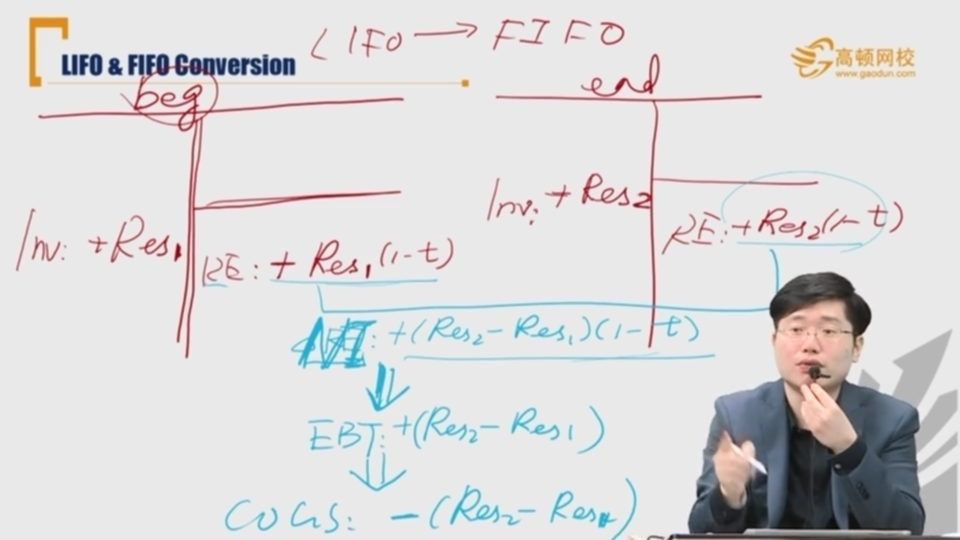 LIFO → FIFO
LIFO & FIFO Conversion
高顿网校
www.gaodun.com
beg
end
Inv: +Res₁
RE: + Res₁(1-t)
Inv: + Res₂
RE: + Res₂(1-t)
NI: +(Res₂-Res₁)(1-t)
EBT: +(Res₂-Res₁)
COGS: -(Res₂-Res₁)